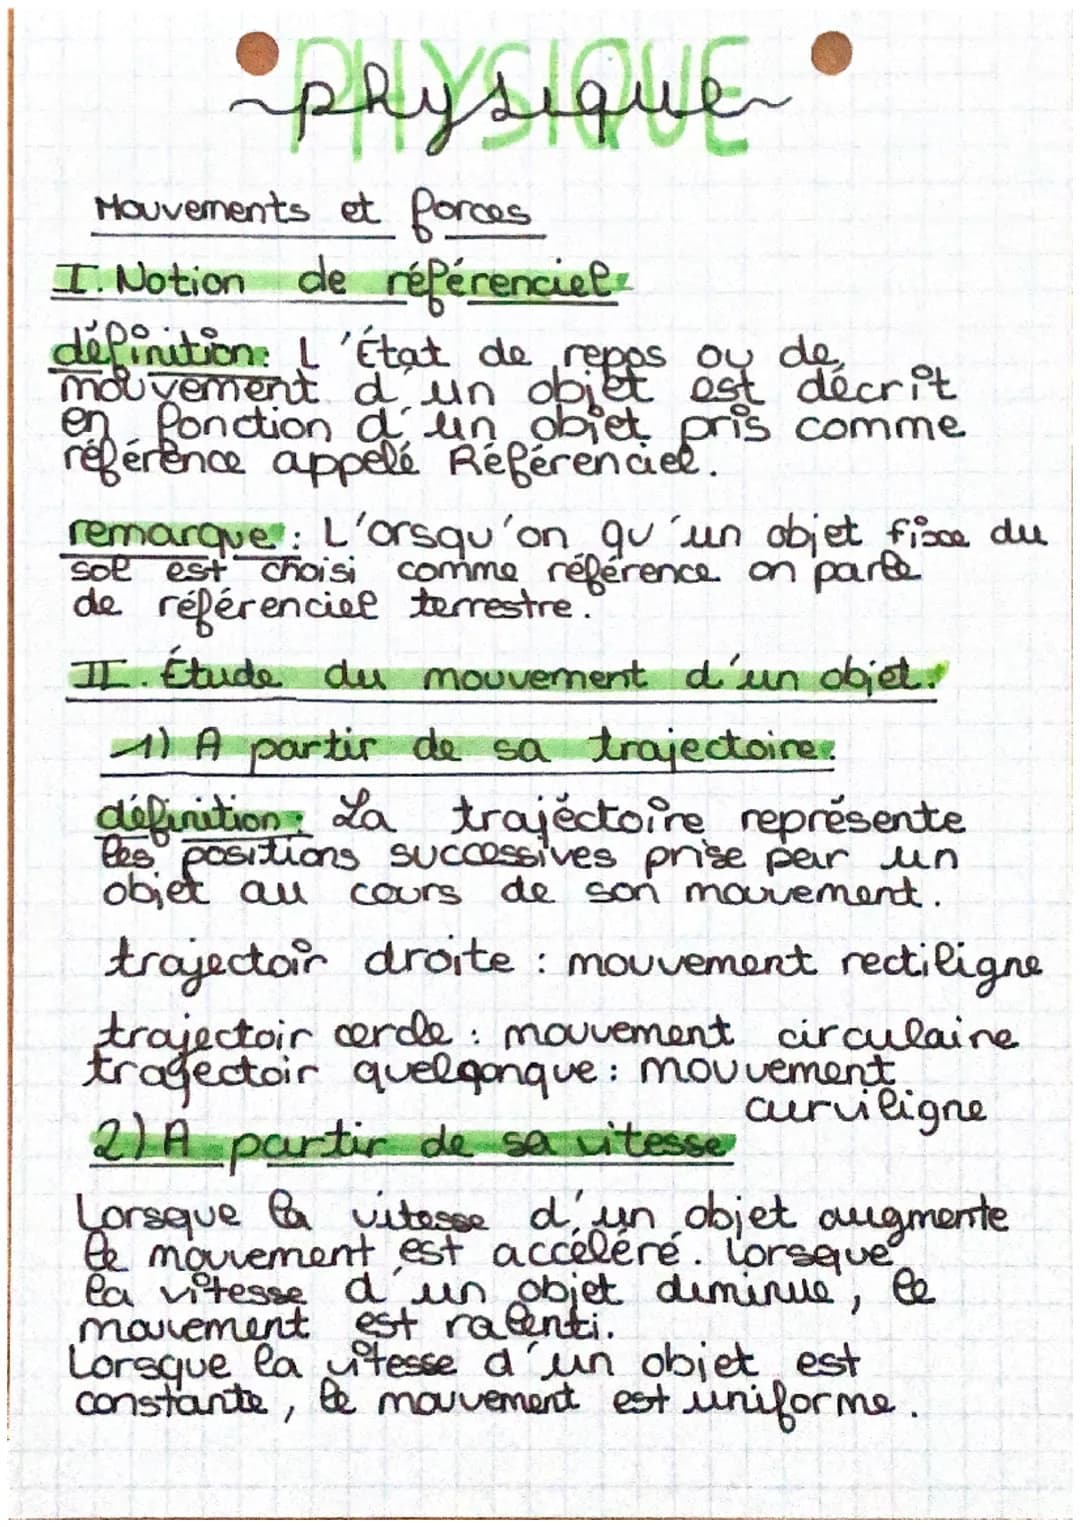 PHYSIQUE
physique
Mouvements et forces
I. Notion de référenciel
définition: L'État de repos ou de
mouvement d'un objet est décrit
en fonction d'un objet pris comme
référence appelé Référenciel.
remarque: L'orsqu'on qu'un objet fixe du
sol est choisi comme référence on parle
de référenciel terrestre.
II. Étude du mouvement d'un objet.
1) A partir de sa trajectoire.
définition: La trajéctoire représente
les positions successives prise par un
objet au cours de son mouvement.
trajectoir droite : mouvement rectiligne
trajectoir cercle : mouvement circulaire
trajectoir quelqonque : mouvement
curviligne
2) A partir de sa vitesse
Lorsque la vitesse d'un objet augmente
le mouvement est accéléré. Lorsque
la vitesse d'un objet diminue, le
mouvement est ralenti.
Lorsque la vitesse d'un objet est
constante, le mouvement est uniforme.